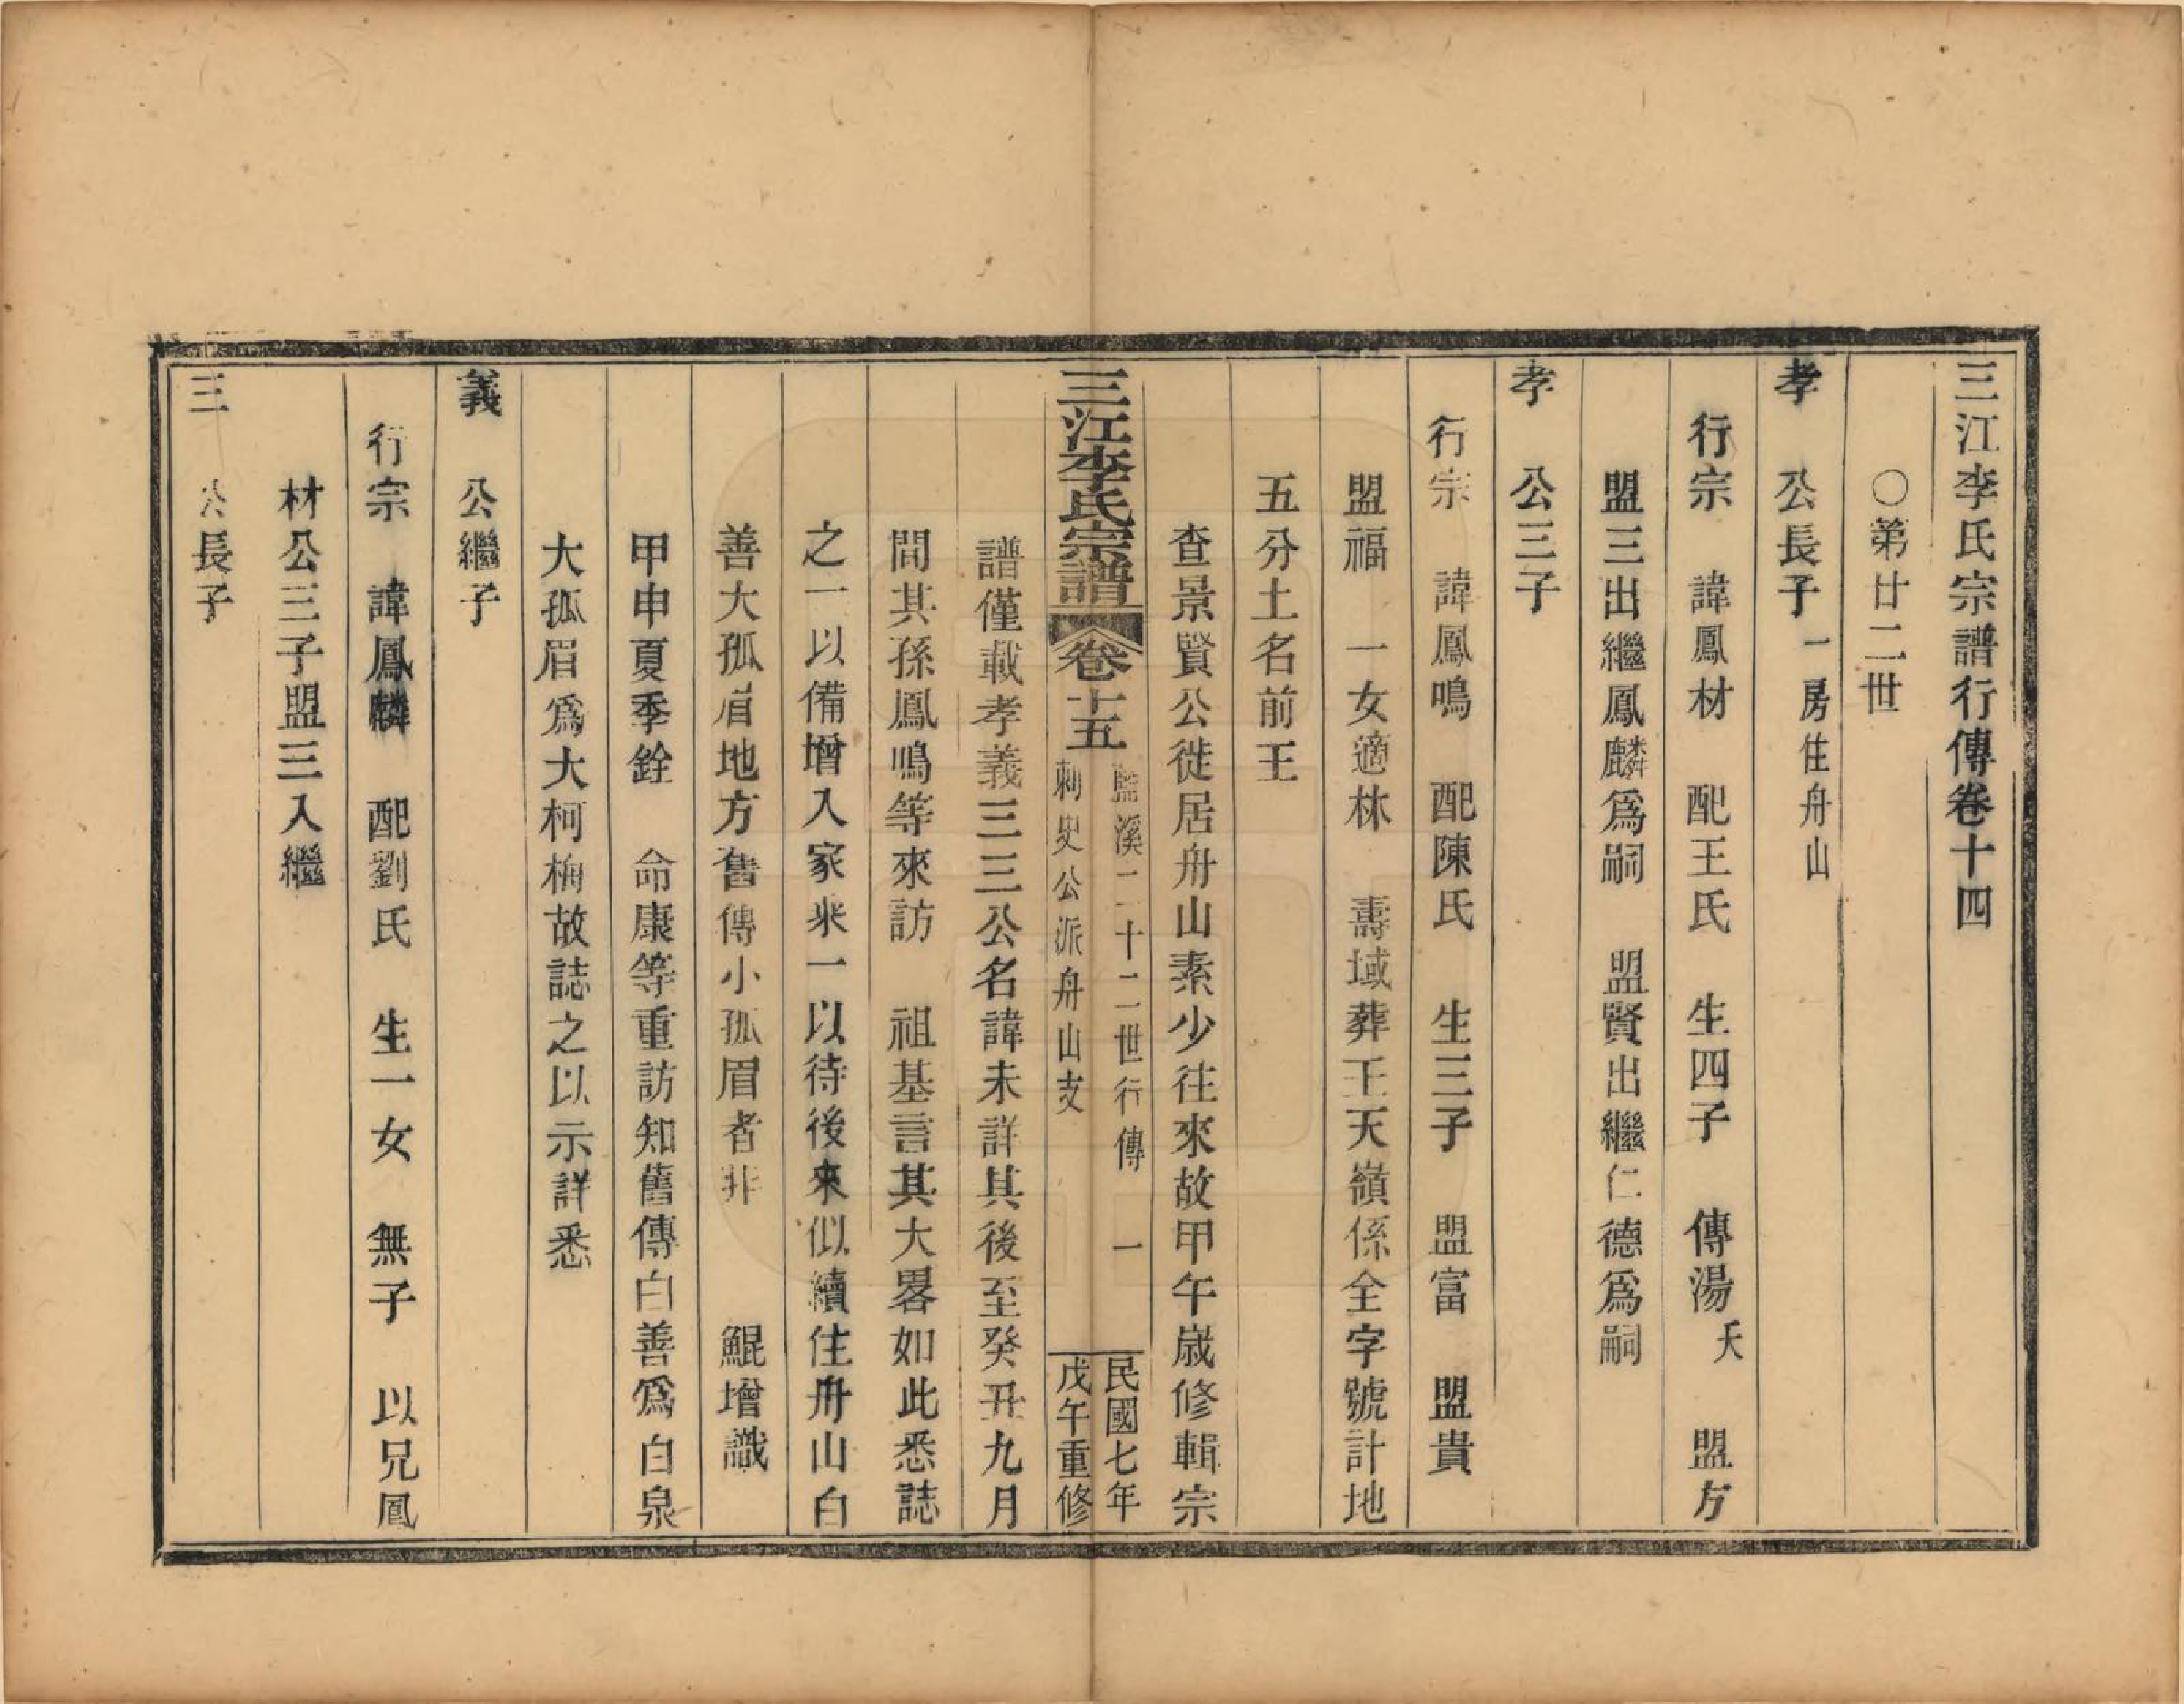 三江李氏宗譜行傳卷十四
〇第廿二世
孝　公長子一房住舟山
行宗　諱鳳材　配王氏　生四子　傳湯夭　盟方
盟三出繼鳳麟爲嗣　盟賢出繼仁德爲嗣
孝　公三子
行宗　諱鳳鳴　配陳氏　生三子　盟富　盟貴
盟福　一女適林　壽域葬王天嶺係全字號計地
五分土名前王
查景賢公徙居舟山素少往來故甲午歲修輯宗
三江李氏宗譜
卷十五
監溪二二十二世行傳　一
刺史公派舟山支
民國七年
戊午重修
譜僅載孝義三三公名諱未詳其後至癸丑九月
間其孫鳳鳴等來訪　祖基言其大畧如此悉誌
之一以備增入家乘一以待後來似續住舟山白
善大孤眉地方舊傳小孤眉者非　鯤增識
甲申夏季銓　命康等重訪知舊傳白善爲白泉
大孤眉爲大柯梅故誌之以示詳悉
義　公繼子
行宗　諱鳳麟　配劉氏　生一女　無子　以兄鳳
材公三子盟三入繼
三　公長子